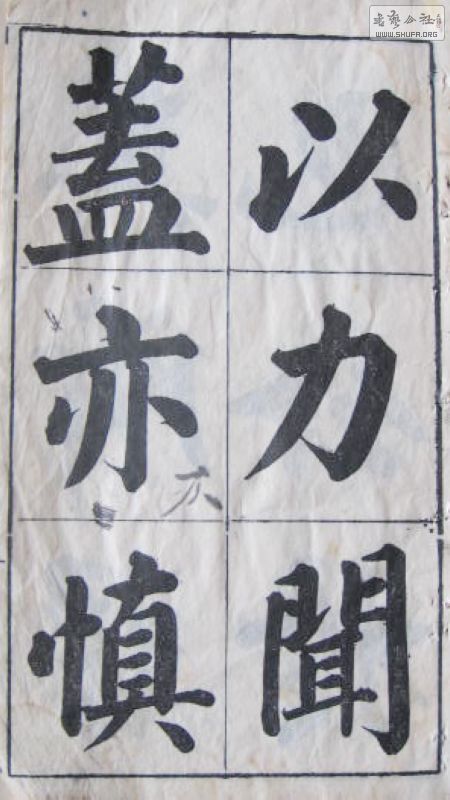 以力聞
蓋亦慎
书艺公社
WWW.SHUFA.ORG